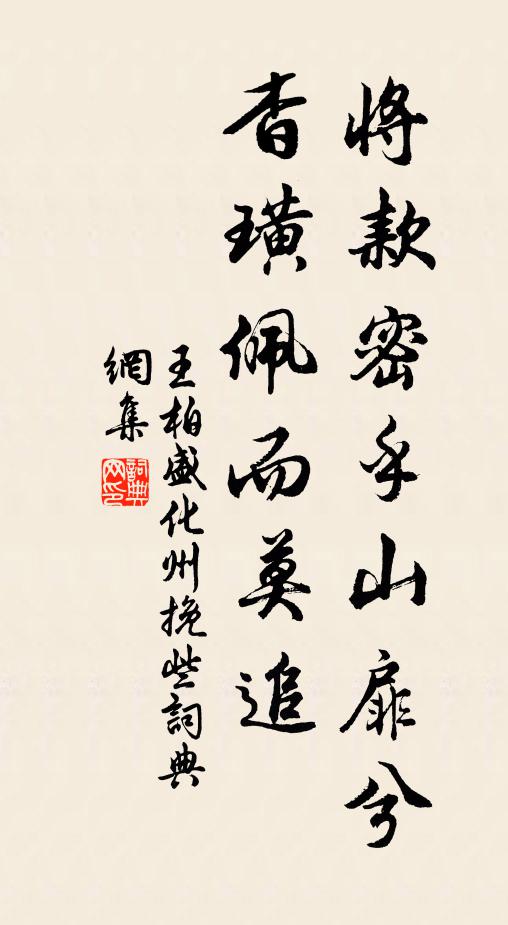 將款密乎山扉兮
杳璜佩而莫追
王柏盛化州挽些詞典
網集
詞典
网印